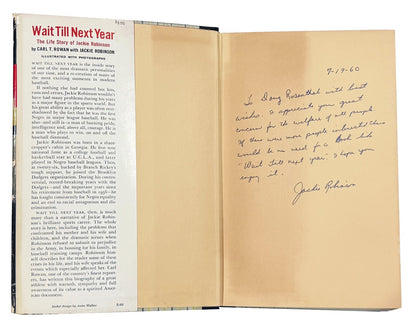 $4.95
Wait Till Next Year
The Life Story of Jackie Robinson
by CARL T. ROWAN with JACKIE ROBINSON
ILLUSTRATED WITH PHOTOGRAPHS
WAIT TILL NEXT YEAR is the inside story
of one of the most dramatic personalities
of our time, and a re-creation of many of
the most exciting moments in modern
baseball.
Jackie Robinson may well have
had many problems during his years
as a major figure in the sports world. But
his great ability as a player was often over-
shadowed by the fact that he was the first
Negro in major league baseball. He was
and still is a man of burning pride,
intelligence and, above all, courage. He is
a man who plays to win, on and off the
baseball diamond.
Jackie Robinson was born in a share-
cropper's cabin in Georgia. He first won
national fame as a college football and
basketball star at U.C.L.A., and later
played in Negro baseball leagues. Then,
tough, he joined the Brooklyn
Dodgers organization. During his contro-
versial, record-breaking years with the
Dodgers—and the important years since
his retirement from baseball in 1956—he
has fought consistently for Negro equality
and an end to racial antagonism and dis-
crimination.
WAIT TILL NEXT YEAR, then, is much
more than a narrative of Jackie Robin-
son's brilliant sports career. The whole
story is here, including the problems that
confronted his mother and his wife and
children, and the dramatic scenes when
Robinson refused to submit to prejudice
in the Army, in housing for his family, in
baseball training camps. Robinson himself
describes for the reader some of these
crises in his life, and his wife speaks of the
events which especially affected her. Carl
Rowan, one of the country's finest report-
ers, has written this biography of a great
athlete with warmth, sympathy and full
awareness of its value as a spirited Ameri-
can document.
Jacket design by
9-19-60
To Doug Rosenthal with best
wishes. I appreciate your great
concern for the welfare of all people
If there were more people interested there
would be no need for a book like
"Wait till next year". I hope you
enjoy it.
Jackie Robinson